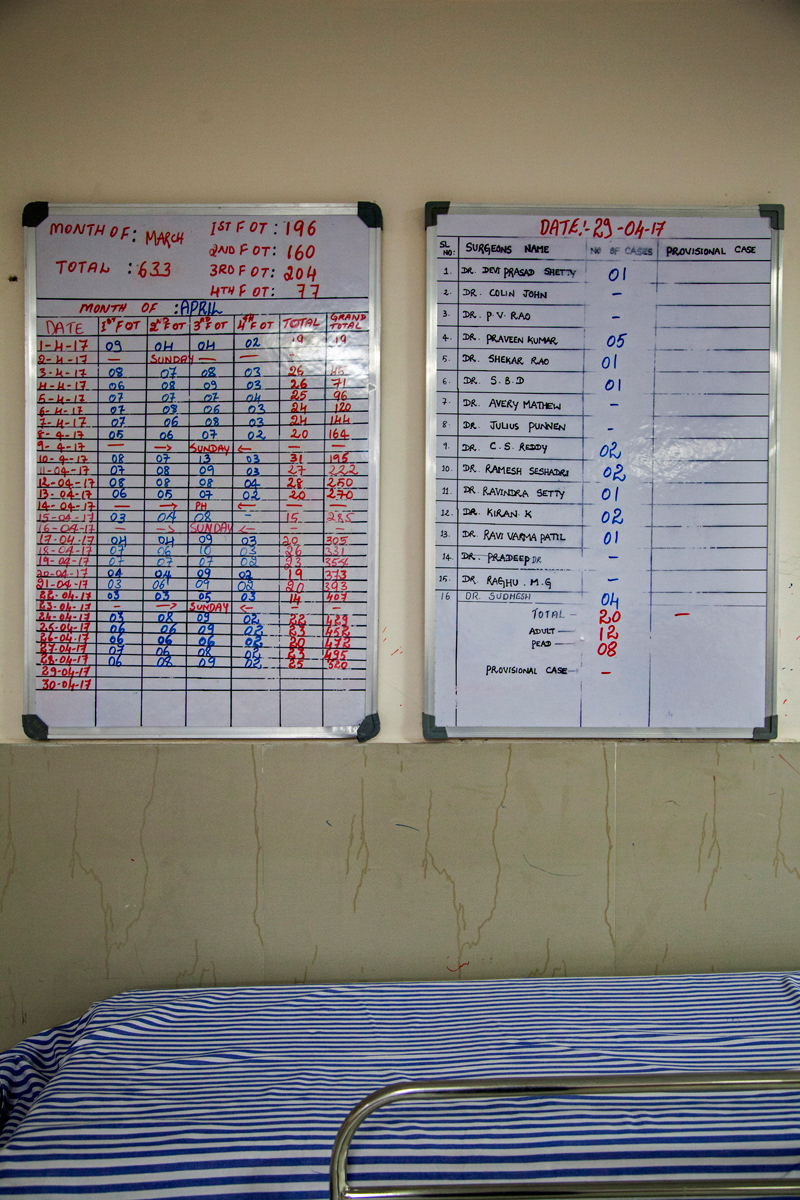 MONTH OF: MARCH 1ST F OT : 196
2ND F OT : 160
TOTAL : 633 3RD F OT : 204
4TH F OT : 77
MONTH OF : APRIL
DATE 1ST F OT 2ND F OT 3RD F OT 4TH F OT TOTAL GRAND TOTAL
1-4-17 09 04 04 02 19 19
2-4-17 — SUNDAY — — —
3-4-17 08 07 08 03 26 45
4-4-17 06 08 09 03 26 71
5-4-17 07 07 07 04 25 96
6-4-17 07 08 06 03 24 120
7-4-17 07 06 08 03 24 144
8-4-17 05 06 07 02 20 164
9-4-17 — → SUNDAY ← — —
10-4-17 08 07 13 03 31 195
11-04-17 07 08 09 03 27 222
12-04-17 08 08 08 04 28 250
13-04-17 06 05 07 02 20 270
14-04-17 — → PH ← — —
15-04-17 03 04 08 - 15 285
16-04-17 - → SUNDAY ← - -
17-04-17 04 04 09 03 20 305
18-04-17 07 06 10 03 26 331
19-04-17 07 07 07 02 23 354
20-04-17 04 04 09 02 19 373
21-04-17 03 06 09 02 20 393
22-04-17 03 03 05 03 14 407
23-04-17 - → SUNDAY ← - -
24-04-17 03 08 09 02 22 429
25-04-17 06 06 09 02 23 452
26-04-17 06 06 06 02 20 472
27-04-17 07 06 08 02 23 495
28-04-17 06 08 09 02 25 520
29-04-17
30-04-17
DATE:-29-04-17
SL NO: SURGEONS NAME NO OF CASES PROVISIONAL CASE
1. DR. DEVI PRASAD SHETTY 01
2. DR. COLIN JOHN -
3. DR. P.V. RAO -
4. DR. PRAVEEN KUMAR 05
5. DR. SHEKAR RAO 01
6. DR. S.B.D 01
7. DR. AVERY MATHEW -
8. DR. JULIUS PUNNEN -
9. DR. C.S. REDDY 02
10. DR. RAMESH SESHADRI 02
11. DR. RAVINDRA SETTY 01
12. DR. KIRAN. K 02
13. DR. RAVI VARMA PATIL 01
14. DR. PRADEEP DR -
15. DR. RAGHU. M.G -
16 DR. SUDHESH 04
TOTAL - 20 -
ADULT — 12
PEAD — 08
PROVISIONAL CASE - -